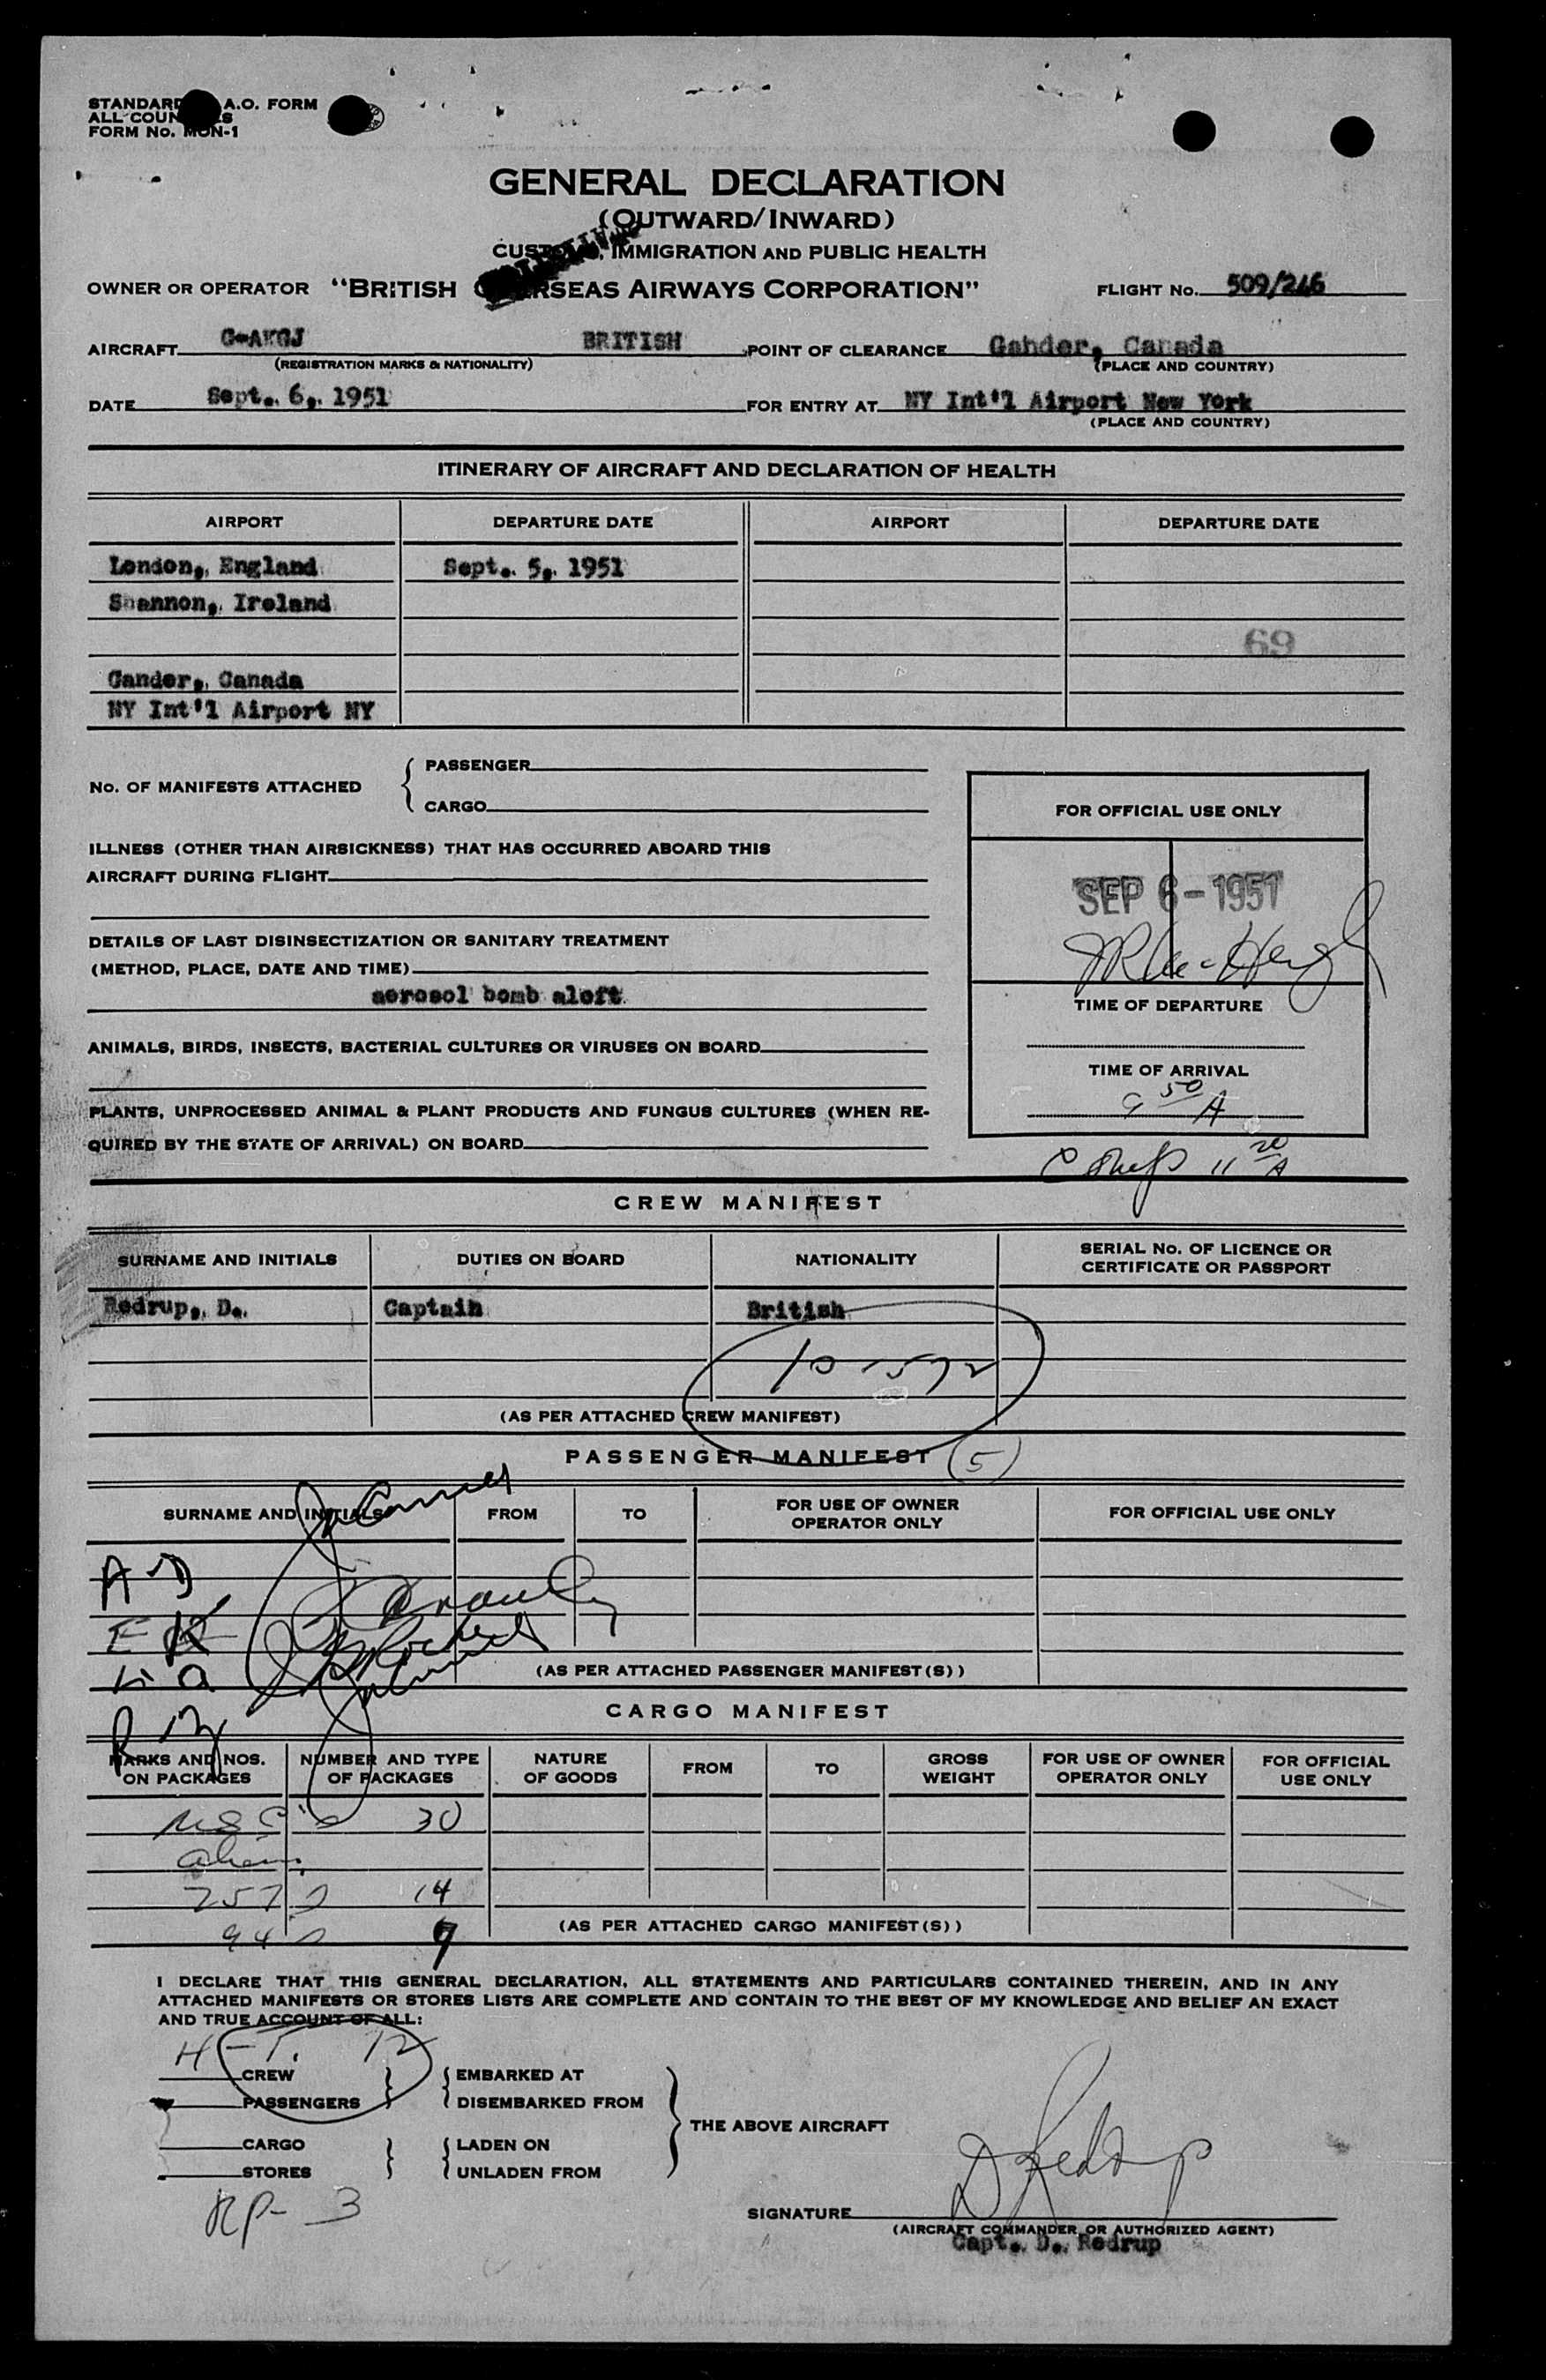 STANDARD A.O. FORM
ALL COUN S
FORM No. MON-1
GENERAL DECLARATION
(OUTWARD/INWARD)
CUSTOMS, IMMIGRATION AND PUBLIC HEALTH
OWNER OR OPERATOR "BRITISH OVERSEAS AIRWAYS CORPORATION" FLIGHT No. 509/246
AIRCRAFT G-AKGJ BRITISH POINT OF CLEARANCE Gander, Canada
(REGISTRATION MARKS & NATIONALITY) (PLACE AND COUNTRY)
DATE Sept. 6, 1951 FOR ENTRY AT NY Int'l Airport New York
(PLACE AND COUNTRY)
ITINERARY OF AIRCRAFT AND DECLARATION OF HEALTH
AIRPORT DEPARTURE DATE AIRPORT DEPARTURE DATE
London, England Sept. 5, 1951
Shannon, Ireland
69
Gander, Canada
NY Int'l Airport NY
No. OF MANIFESTS ATTACHED { PASSENGER
CARGO
FOR OFFICIAL USE ONLY
ILLNESS (OTHER THAN AIRSICKNESS) THAT HAS OCCURRED ABOARD THIS
AIRCRAFT DURING FLIGHT
SEP 6-1951
DETAILS OF LAST DISINSECTIZATION OR SANITARY TREATMENT
(METHOD, PLACE, DATE AND TIME)
aerosol bomb aloft
TIME OF DEPARTURE
ANIMALS, BIRDS, INSECTS, BACTERIAL CULTURES OR VIRUSES ON BOARD
TIME OF ARRIVAL
9 50 A
PLANTS, UNPROCESSED ANIMAL & PLANT PRODUCTS AND FUNGUS CULTURES (WHEN RE-
QUIRED BY THE STATE OF ARRIVAL) ON BOARD
11 20 A
CREW MANIFEST
SURNAME AND INITIALS DUTIES ON BOARD NATIONALITY SERIAL No. OF LICENCE OR
CERTIFICATE OR PASSPORT
Redrup, D. Captain British
10-572
(AS PER ATTACHED CREW MANIFEST)
PASSENGER MANIFEST (5)
SURNAME AND INITIALS FROM TO FOR USE OF OWNER
OPERATOR ONLY FOR OFFICIAL USE ONLY
A-D
(AS PER ATTACHED PASSENGER MANIFEST(S))
CARGO MANIFEST
MARKS AND NOS.
ON PACKAGES NUMBER AND TYPE
OF PACKAGES NATURE
OF GOODS FROM TO GROSS
WEIGHT FOR USE OF OWNER
OPERATOR ONLY FOR OFFICIAL
USE ONLY
30
257 14
94
(AS PER ATTACHED CARGO MANIFEST(S))
I DECLARE THAT THIS GENERAL DECLARATION, ALL STATEMENTS AND PARTICULARS CONTAINED THEREIN, AND IN ANY
ATTACHED MANIFESTS OR STORES LISTS ARE COMPLETE AND CONTAIN TO THE BEST OF MY KNOWLEDGE AND BELIEF AN EXACT
AND TRUE ACCOUNT OF ALL:
H-T. 12
CREW } { EMBARKED AT
PASSENGERS DISEMBARKED FROM
} THE ABOVE AIRCRAFT
CARGO } { LADEN ON
STORES UNLADEN FROM
RP- 3
D Redrup
SIGNATURE
(AIRCRAFT COMMANDER OR AUTHORIZED AGENT)
Capt. D. Redrup